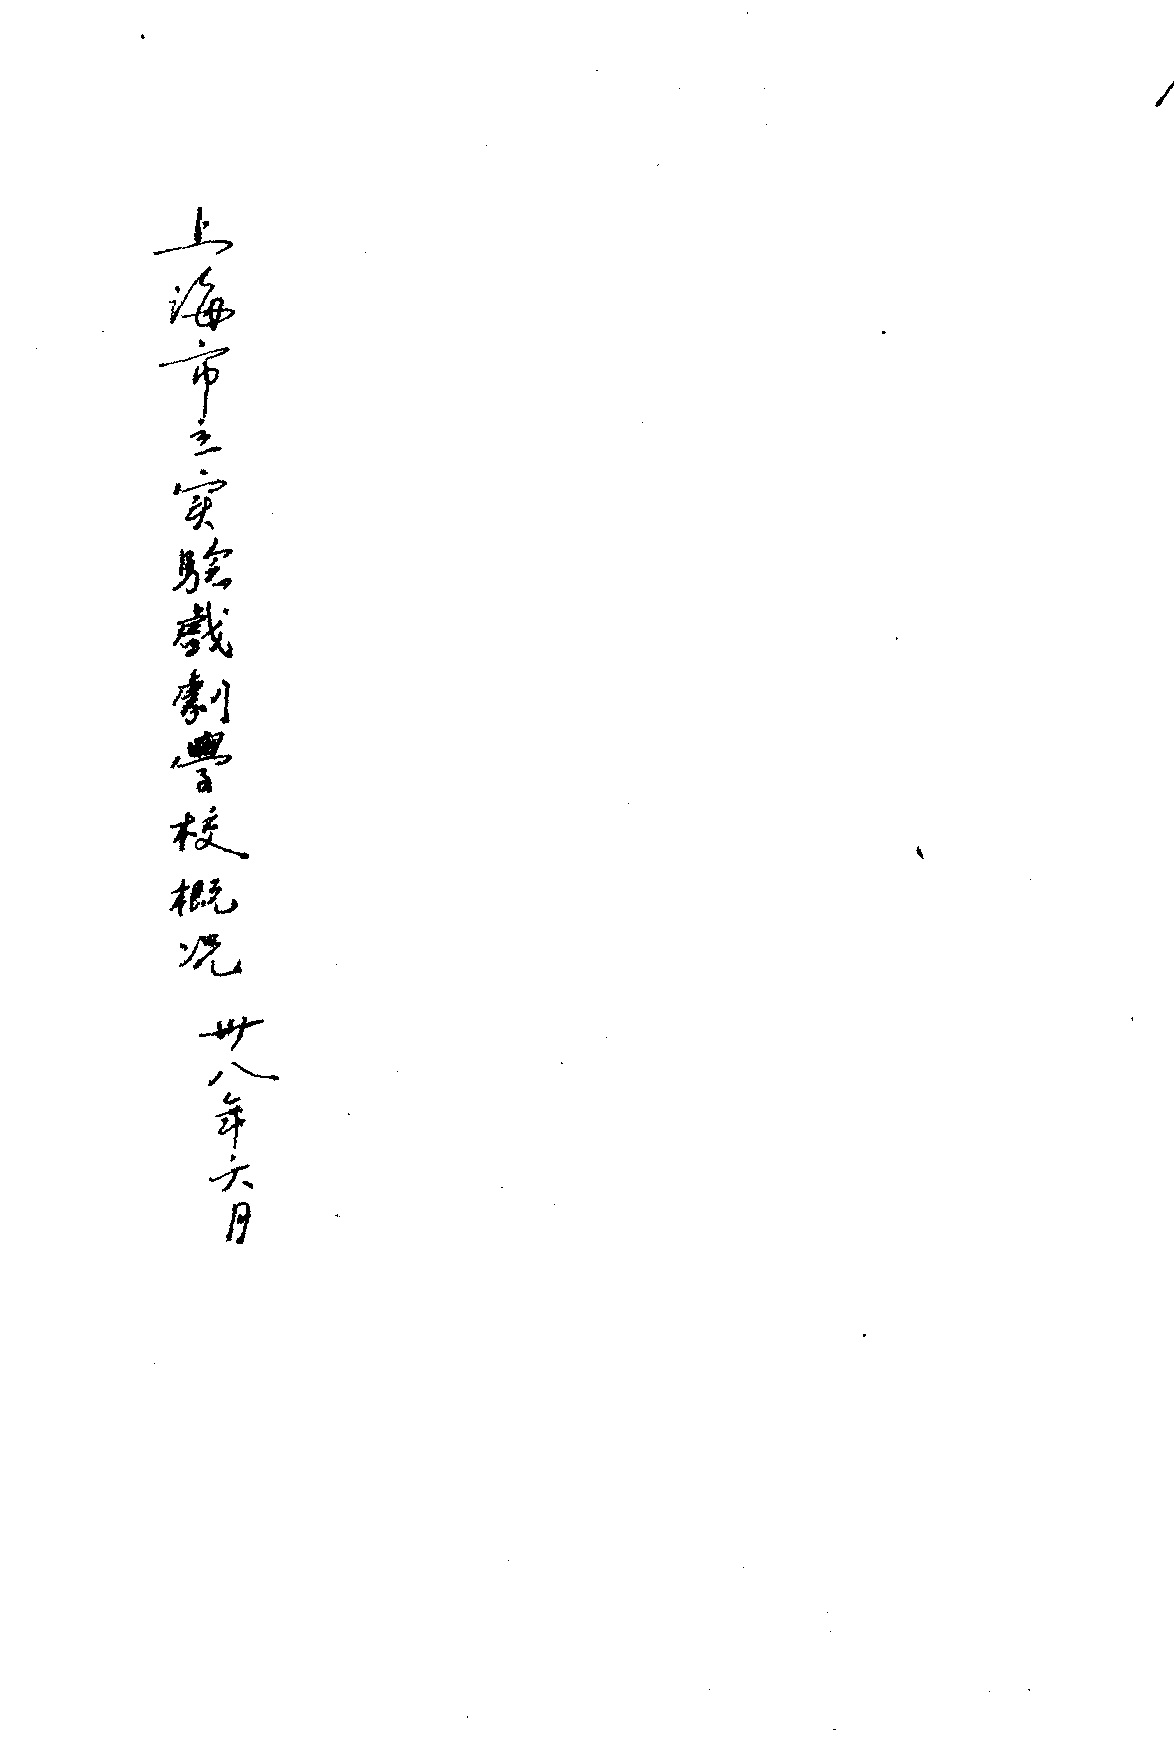 上海市立实驗戲劇學校概况 卅八年六月